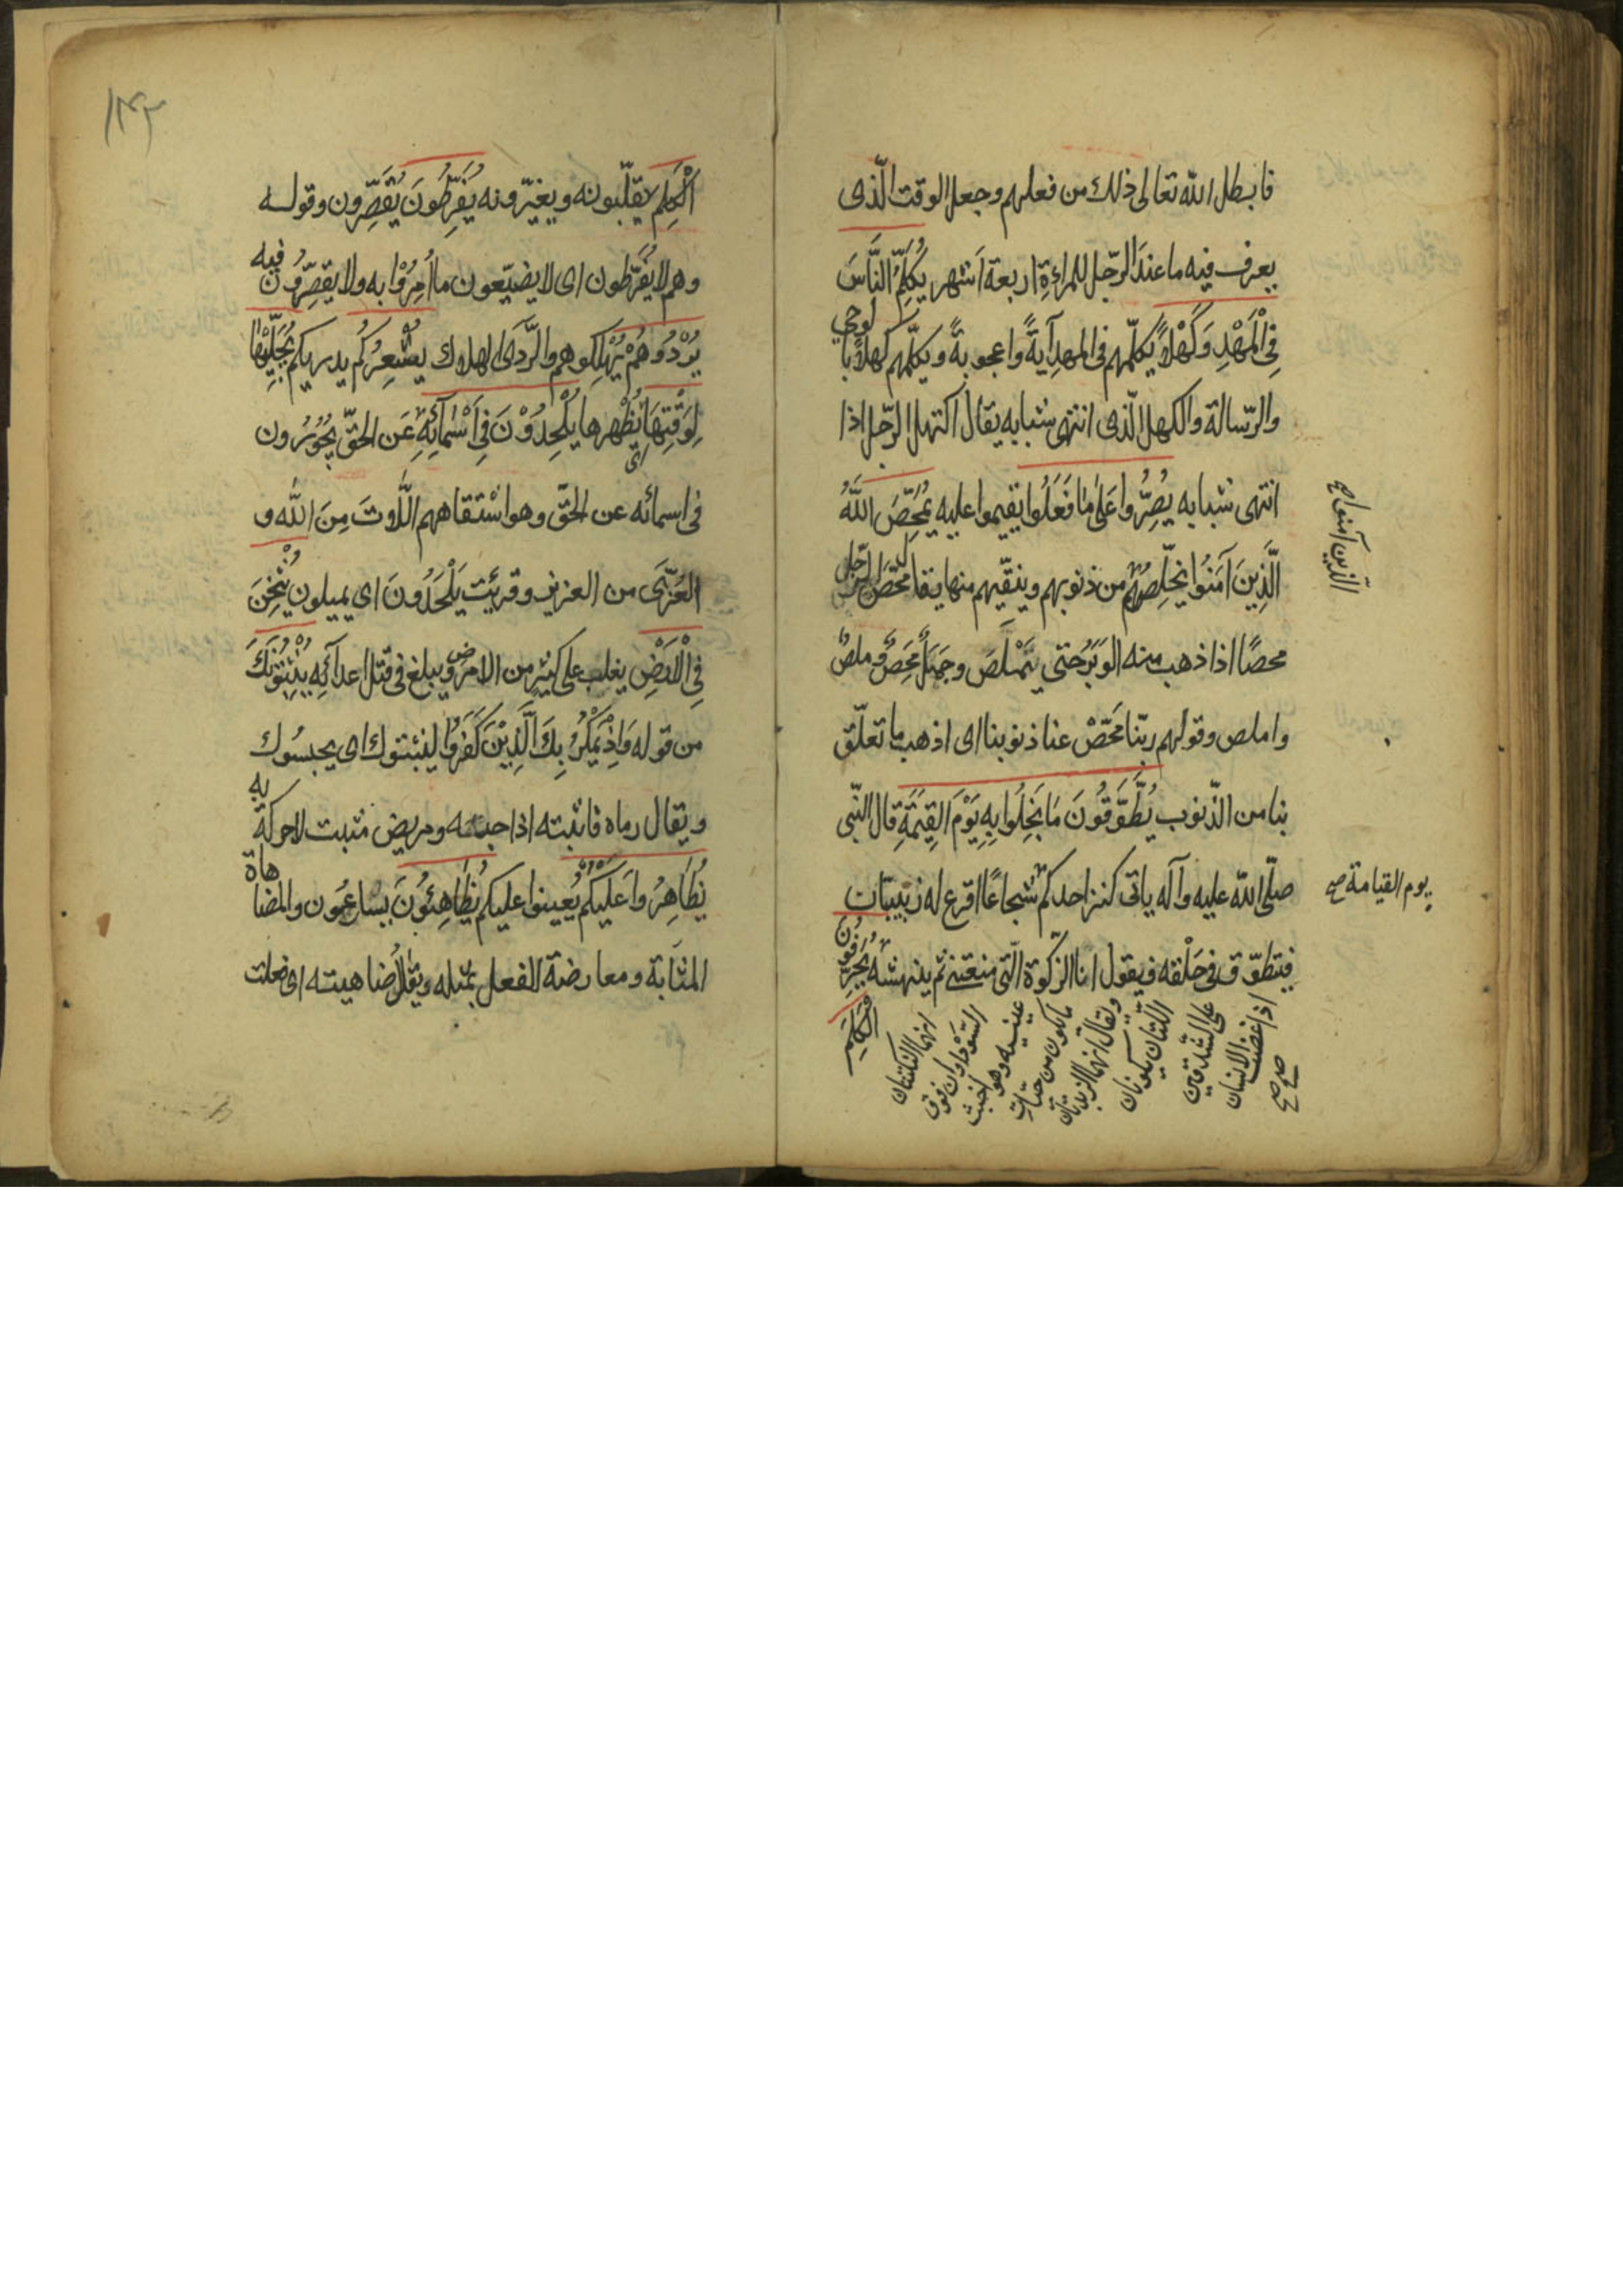 فابطل الله تعالى ذلك من فعلهم وجعل الوقت الّذى
يعرف فيه ما عند الرّجل للمراءةِ اربعة اَشهر يُكَلِّمُ النَّاسَ
فِى الْمَهْدِ وَكَهْلاً يكلّمهم فى المهد آيةً واعجوبةً ويكلّمهم كهلاً بالوحي
والرّسالة والكهل الّذى انتهى شبابه يقال اكتهل الرّجل اذا
انتهى شبابه يُصِرُّوا عَلىٰ مٰا فَعَلُوا يقيموا عليه يُمَحِّصَ اللّٰهُ
الَّذِينَ آمَنُوا يخلّصهُم من ذنوبهم وينقّيهم منها يقال محّصَ الحبل
الّذين آمنوا صح
محصًا اذا ذهب منه الوَبَرُ حتى يَمْلصَ وجَبَلٌ مَحِصٌ وملصٌ
واملص وقولهم ربّنا مَحّصْ عنا ذنوبنا اى اذهب ما تعلّق
بنا من الذّنوب يُطَّوَّقُونَ مٰا بَخِلُوا بِهِ يَوْمَ القِيٰمَةِ قال النّبى
صلّى الله عليه وآله ياتى كنز احدكم شجاعًا اقرع له زبيبتان
يوم القيامة صح
فيتطوّق فى حَلْقه فيقول انا الزّكوة الّتى منعتنى ثم ينهشه يُحَرِّفُونَ
اذا غضب الانسان
صح صح
على الشدقين
اللّتان يكونان
ويقال انهما الزبدتان
ما يكون من حيّات
عينيه وهو اخبث
السّوداوان فوق
انهما النكتتان
الكَلِمَ
١٣٢
اَلْكَلِمَ يقلّبونه ويغيّرونه يُفَرِّطُونَ يُقَصِّرون وقوله
وهم لا يُفَرّطون اى لا يضيّعون ما اُمِرُوْا به ولا يقصّرُون فيه
يُرْدُوْهُمْ يُهْلِكوهم والرَّدَى الهلاك يُشْعِرُكُم يدريكم يُجَلِّيْهٰا
لِوَقْتِهٰا يُظْهرها يُلْحِدُوْنَ فِى اَسْمٰآئِهِ عَن الحقّ يجُوْرُون
اى
فى اسمائه عن الحقّ وهو اشتقاقهم اللّاتَ مِنَ الله و
العُزَّى من العزيز وقرئت يَلْحَدُونَ اى يميلون يُثْخِنَ
فِى الْاَرْضِ يغلب على كثير من الارض ويبلغ فى قتل اعدآئِه يُثْبِتُوْنَكَ
من قوله وَاِذْ يَمْكُرُ بِكَ الَّذِيْنَ كَفَرُوْا ليثبتوك اى يحبسُوك
ويقال رماه فاثبته اذا حبسه ومريض مثبت لا حركة به
يُظَاهِرُوا عَلَيْكُم يُعينوا عليكم يُظَاهِئُونَ يشابهُون والمضاهاة
المشابة ومعارضة الفعل بمثله ويقال ضاهيته اى فعلت